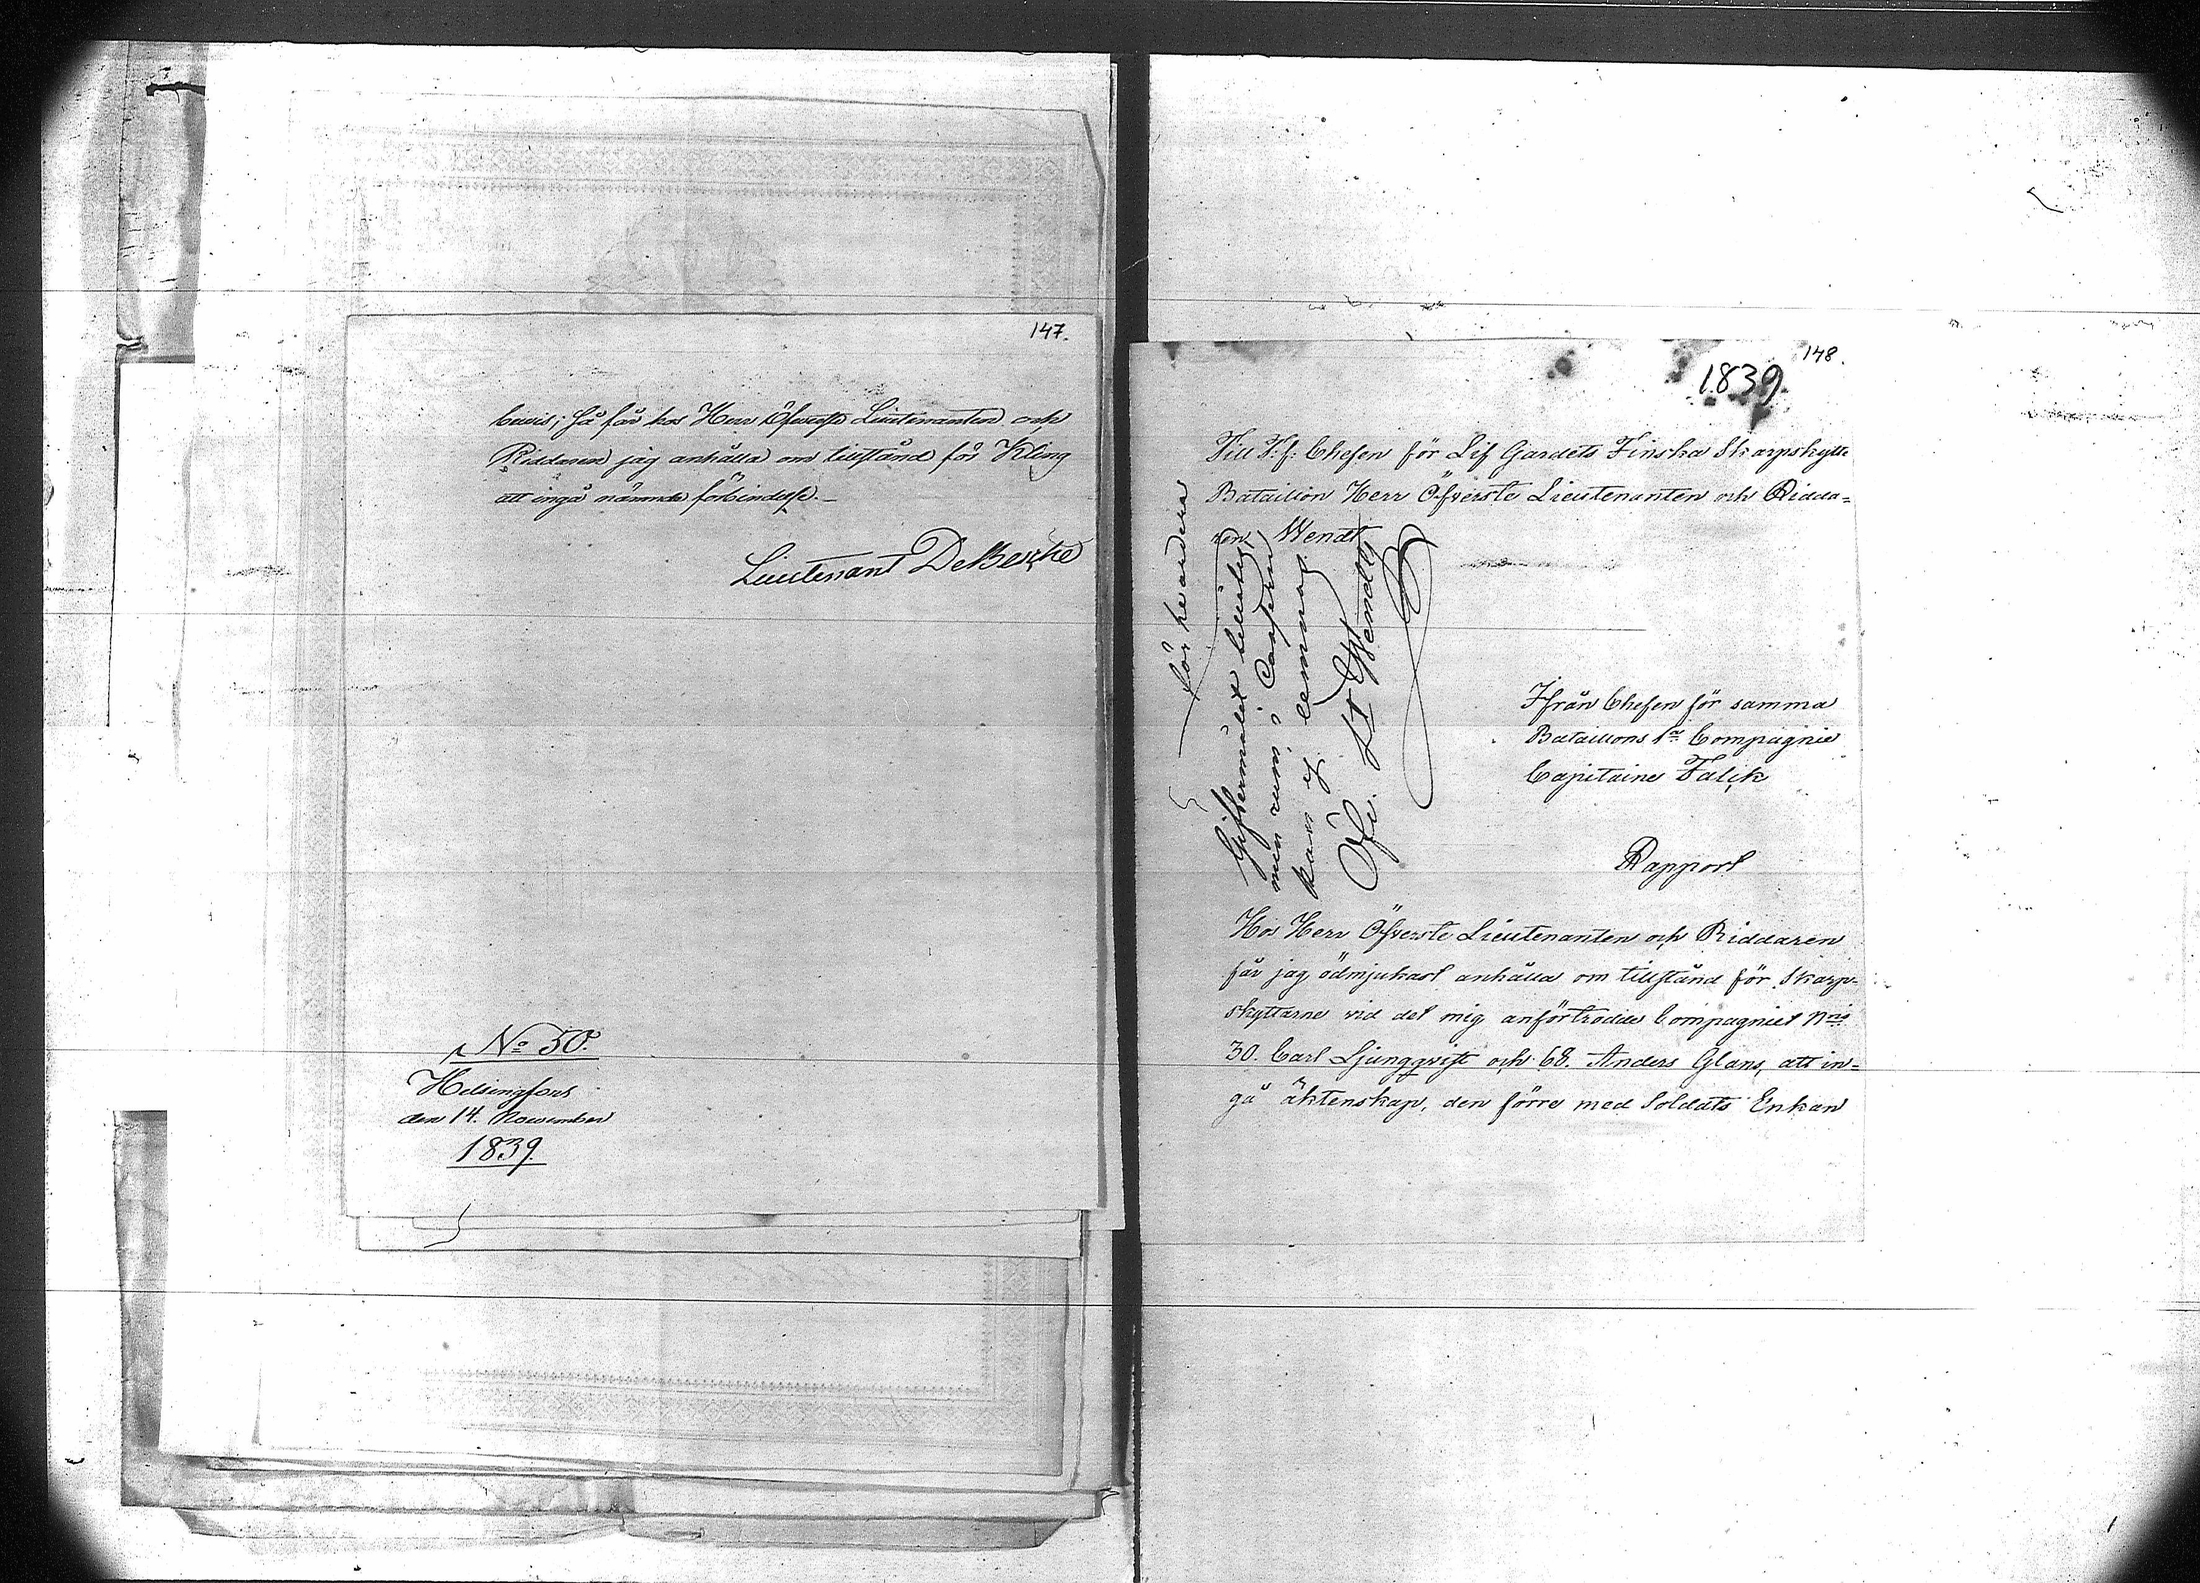 147.
bevis; Så får hos Herr Öfverste Lieutenanten och
Riddaren jag anhålla om tillstånd för Kling
att ingå nämnda förbindelse.
Lieutenant DeBesche
No 50.
Helsingfors
den 14. November
1839.
148.
1839.
Till T: f: Chefen för Lif Gardets Finska Skarpskytte
Bataillon Herr Öfverste Lieutenanten och Ridda=
ren Wendt
för hvardera
Giftermålet tillåtes,
men rum i Casern
kan ej lemnas
Öfv. Lt Wendt
Ifrån Chefen för samma
Bataillons 1a Compagnie
Capitaine Falck
Rapport
Hos Herr Öfverste Lieutenanten och Riddaren
får jag ödmjukast anhålla om tillstånd för Skarp=
skyttarne vid det mig anförtrodde Compagniet Nris
30. Carl Ljungqvist och 68. Anders Glans, att in=
gå äktenskap, den förre med Soldats Enkan